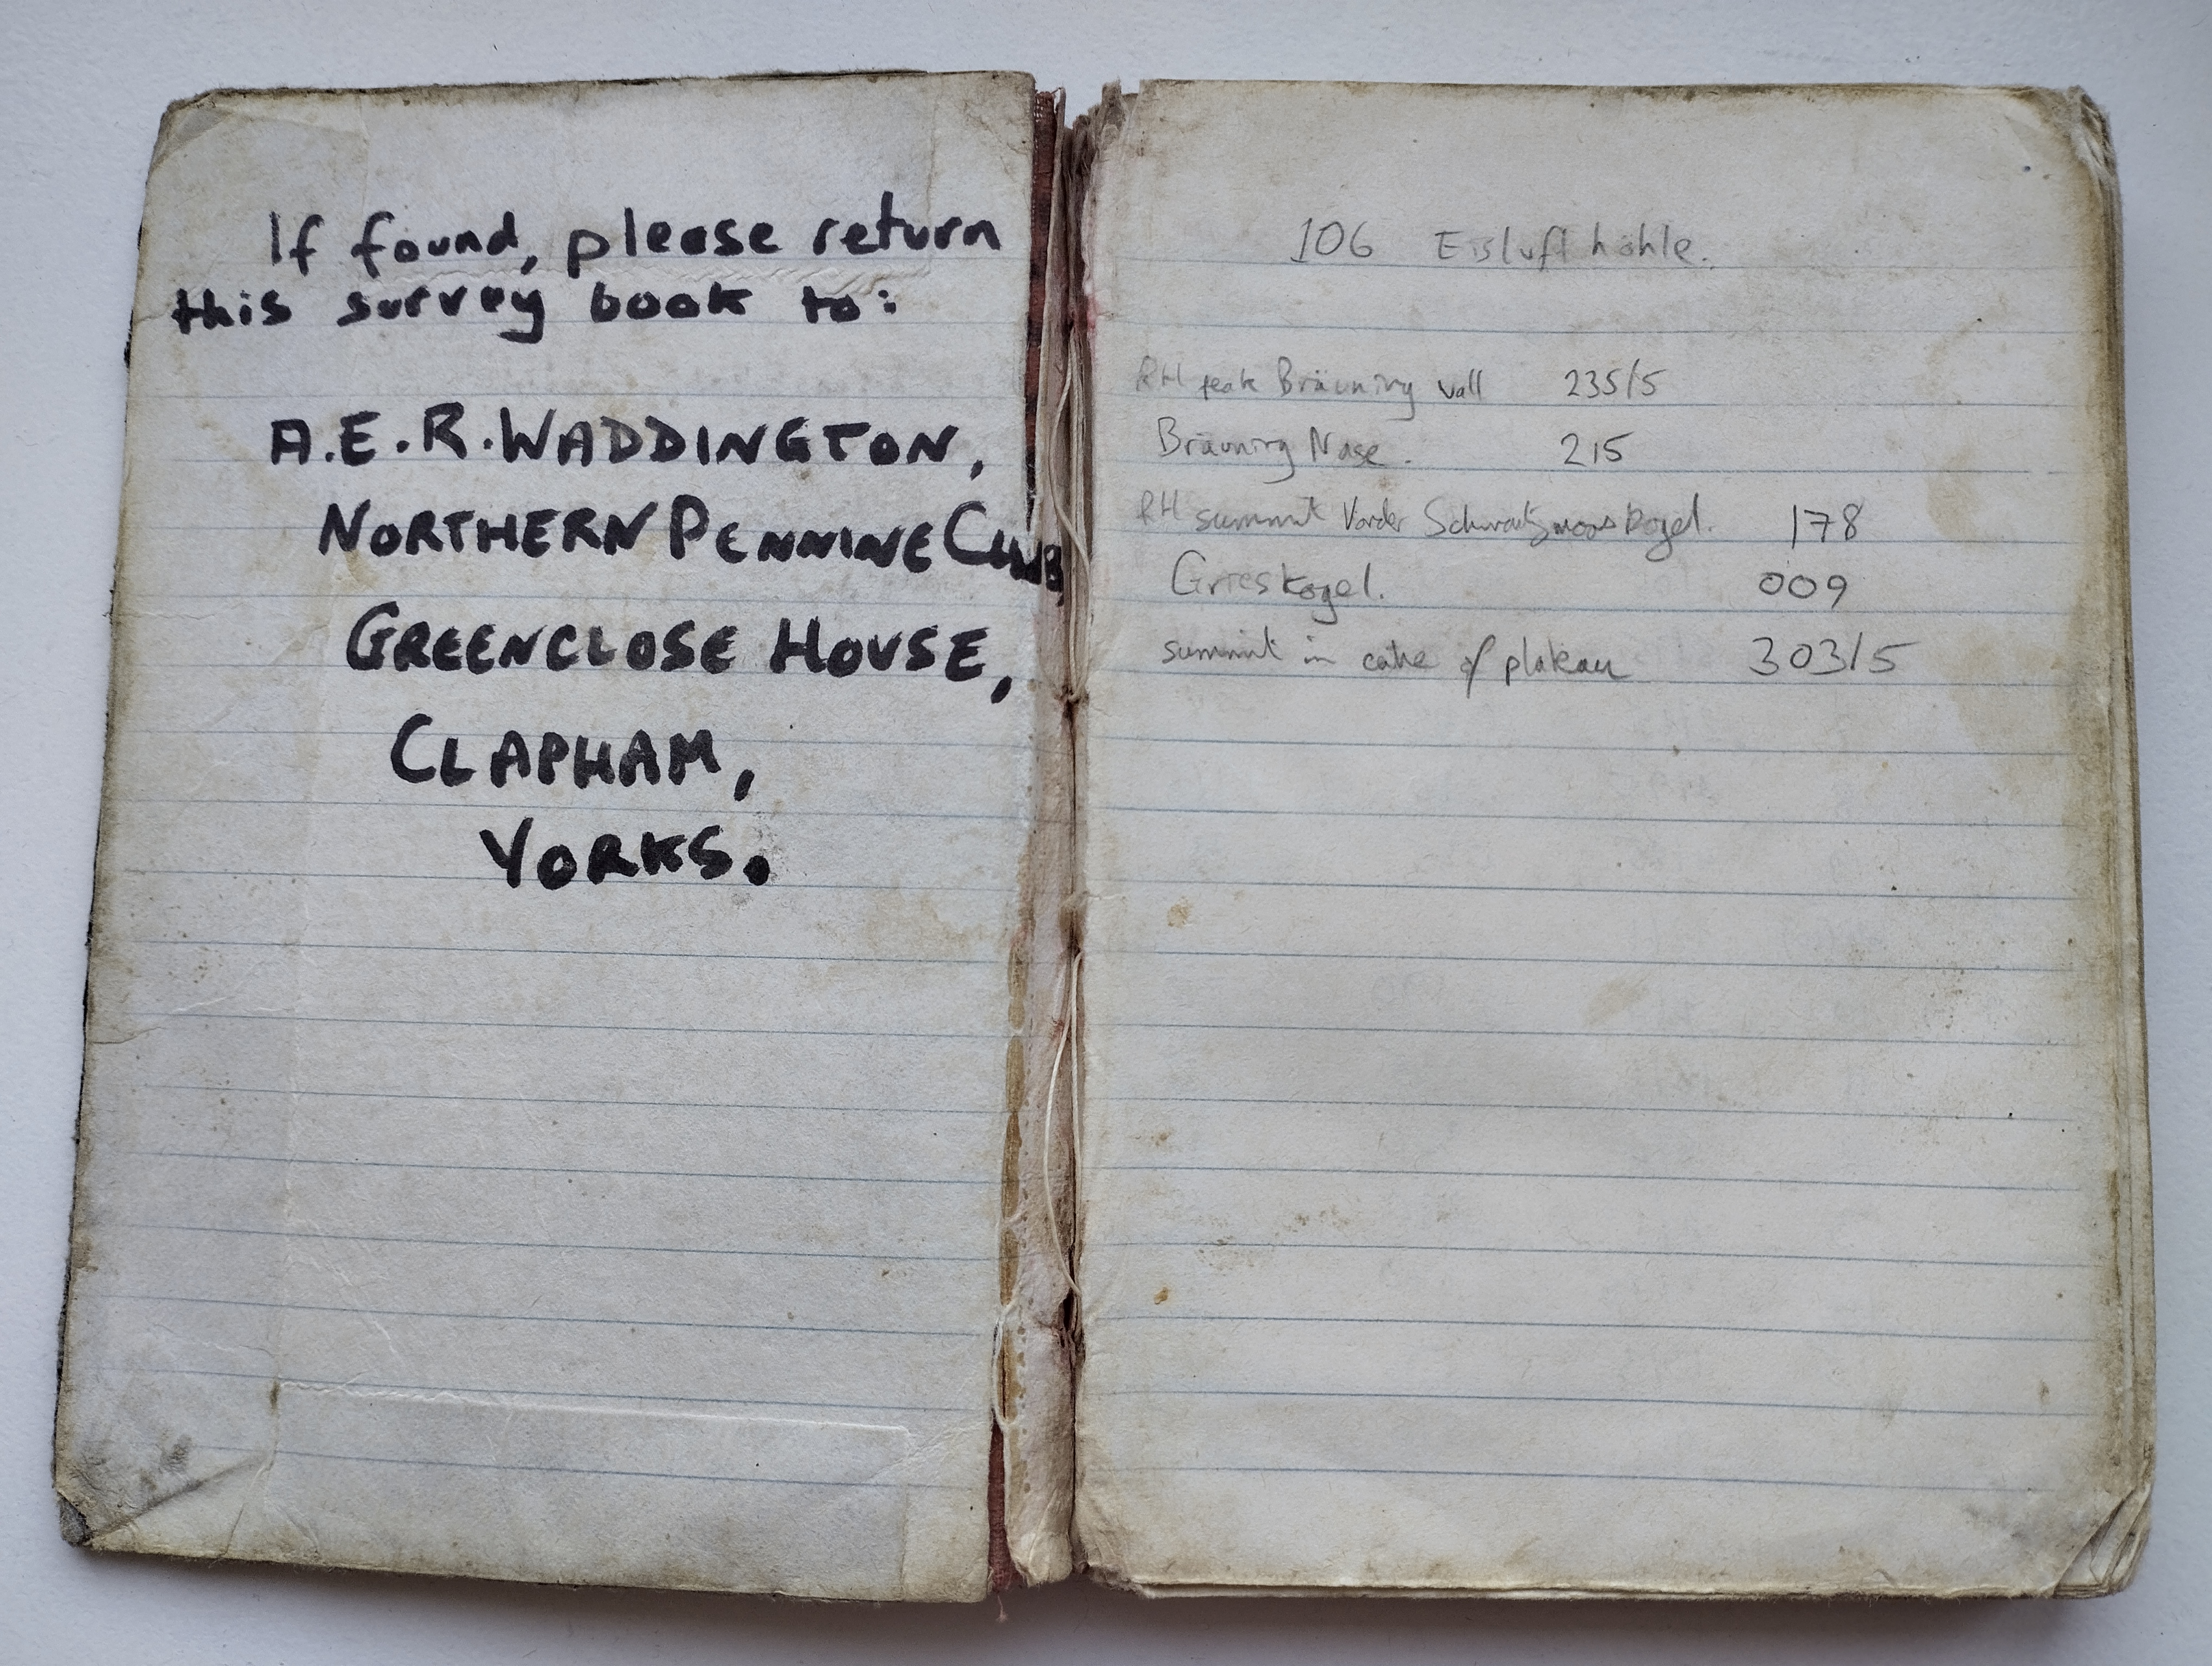 If found, please return
this survey book to:
A.E.R. WADDINGTON,
NORTHERN PENNINE CLUB,
GREENCLOSE HOUSE,
CLAPHAM,
YORKS.
106 Eisluft höhle.
RH peak Bräuning wall 235/5
Bräuning Nase. 215
RH summit Vorder Schwartzmooskogel. 178
Grieskogel. 009
summit in of plateau 303/5